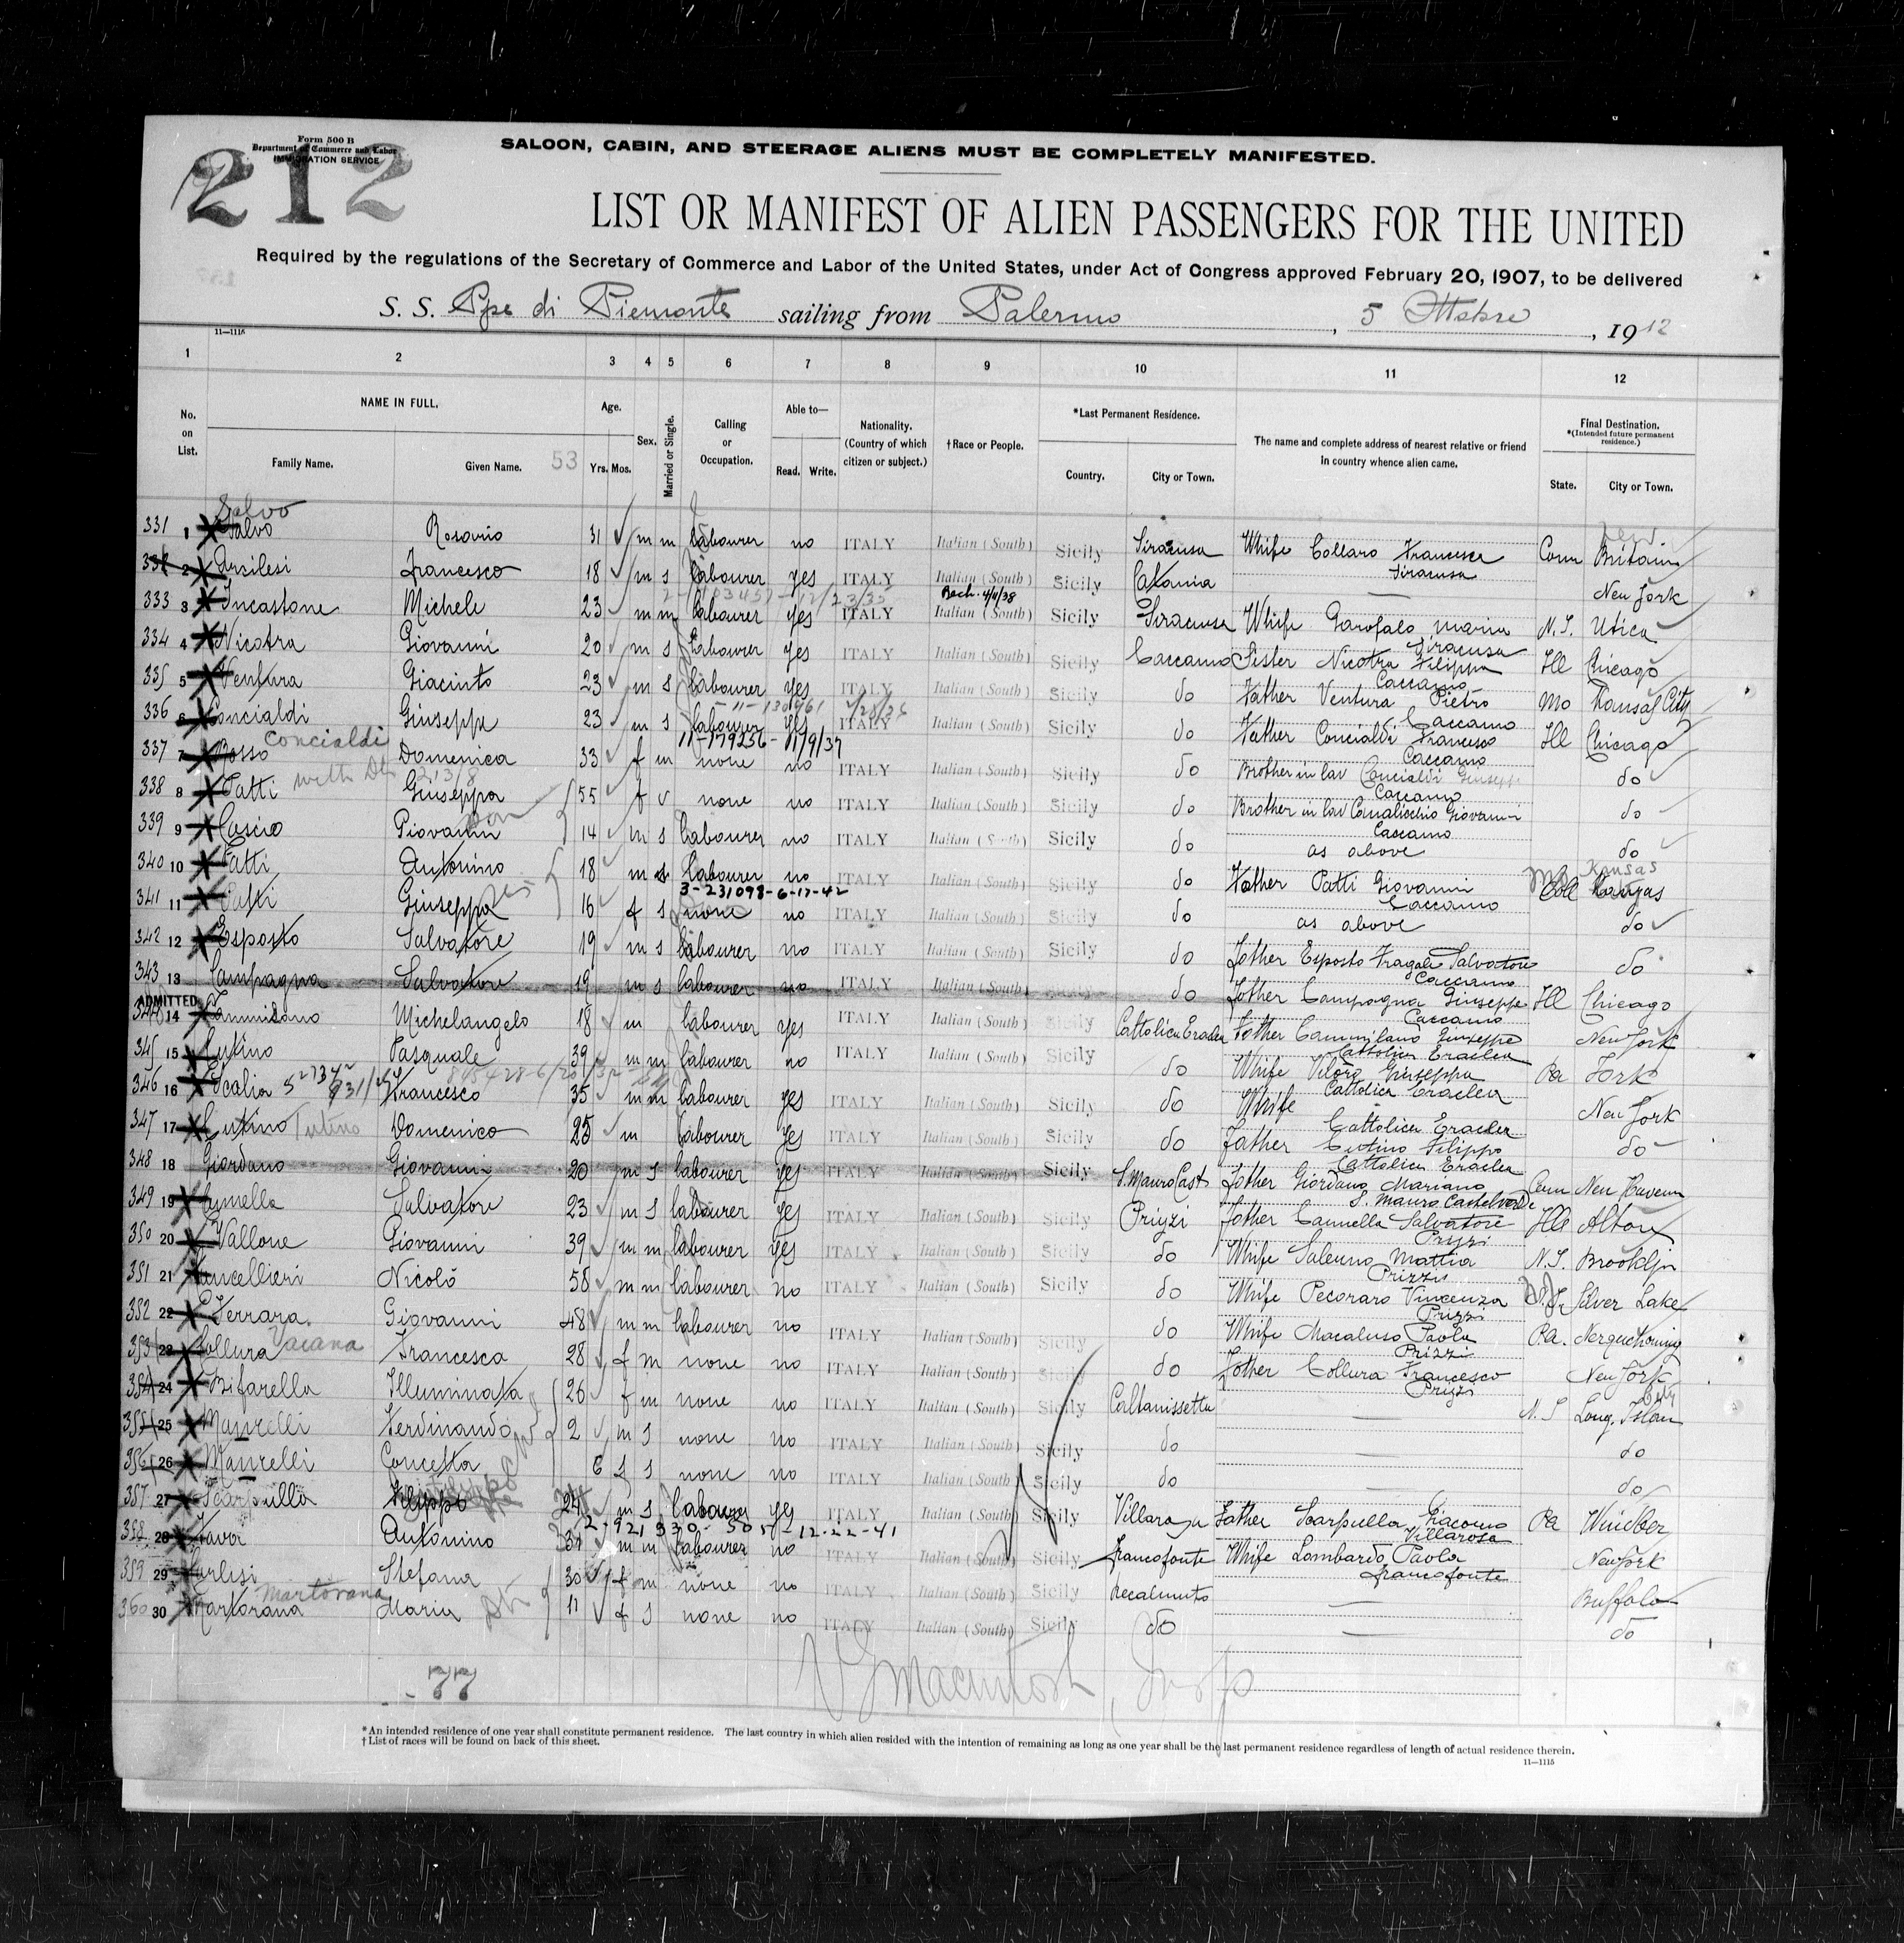 Form 500 B
Department of Commerce and Labor
IMMIGRATION SERVICE
212
SALOON, CABIN, AND STEERAGE ALIENS MUST BE COMPLETELY MANIFESTED.
LIST OR MANIFEST OF ALIEN PASSENGERS FOR THE UNITED
Required by the regulations of the Secretary of Commerce and Labor of the United States, under Act of Congress approved February 20, 1907, to be delivered
S. S. Ppe di Piemonte sailing from Palermo, 5 Ottobre, 1912
11—1115
1 2 3 4 5 6 7 8 9 10 11 12
No. on List. NAME IN FULL. Age. Sex. Married or Single. Calling or Occupation. Able to— Nationality. (Country of which citizen or subject.) †Race or People. *Last Permanent Residence. The name and complete address of nearest relative or friend in country whence alien came. Final Destination. *(Intended future permanent residence.)
Family Name. Given Name. 53 Yrs. Mos. Read. Write. Country. City or Town. State. City or Town.
Salvo
331 1 Salvo Rosario 31 m m labourer no ITALY Italian (South) Sicily Siracusa Whife Collaro Francesca Siracusa Conn New Britain
332 2 Francesco 18 m s labourer yes ITALY Italian (South) Sicily Catania — New York
2/23/35 Rech. 4/4/38
333 3 Incastone Michele 23 m m labourer yes ITALY Italian (South) Sicily Siracusa Whife Garofalo Maria Siracusa N.Y. Utica
334 4 Nicotra Giovanni 20 m s labourer yes ITALY Italian (South) Sicily Caccamo Sister Nicotra Filippa Caccamo Ill Chicago
335 5 Ventura Giacinto 23 m s labourer yes ITALY Italian (South) Sicily do Father Ventura Pietro Caccamo Mo Kansas City
336 6 Concialdi Giuseppe 23 m s labourer yes ITALY Italian (South) Sicily do Father Concialdi Francesco Caccamo Ill Chicago
Concialdi 11-179256-11/9/37
337 7 Rosso Domenica 33 f m none no ITALY Italian (South) Sicily do Brother in law Concialdi Giuseppe Caccamo do
338 8 Patti Giuseppa 55 f v none no ITALY Italian (South) Sicily do Brother in law Giovanni Caccamo do
339 9 Cascio Piovannin 14 m s labourer no ITALY Italian (South) Sicily do as above do
340 10 Patti Antonino 18 m s labourer no ITALY Italian (South) Sicily do Father Patti Giovanni Caccamo Mo Kansas
3-231098-6-17-42
341 11 Patti Giuseppa 16 f s none no ITALY Italian (South) Sicily do as above do
342 12 Esposto Salvatore 19 m s labourer no ITALY Italian (South) Sicily do Father Esposto Fragale Salvatore Caccamo do
343 13 Campagna Salvatore 19 m s labourer no ITALY Italian (South) do Father Campagna Giuseppe Caccamo Ill Chicago
ADMITTED
344 14 Cammilano Michelangelo 18 m labourer yes ITALY Italian (South) Sicily Cattolica Eraclea Father Cammilano Giuseppe Cattolica Eraclea New York
345 15 Cutino Pasquale 39 m m labourer no ITALY Italian (South) Sicily do Whife Giuseppa Cattolica Eraclea Pa York
346 16 Scalia Francesco 35 m m labourer yes ITALY Italian (South) Sicily do Whife Cattolica Eraclea New York
347 17 Cutino Cutino Domenico 25 m labourer yes ITALY Italian (South) Sicily do Father Cutino Filippo Cattolica Eraclea do
348 18 Giordano Giovanni 20 m s labourer yes ITALY Italian (South) Sicily S. Mauro Cast Father Giordano Mariano S. Mauro Castelverde Conn New Havenn
349 19 Salvatore 23 m s labourer yes ITALY Italian (South) Sicily Prizzi Father Cannella Salvatore Prizzi Ill Alton
350 20 Vallone Giovanni 39 m m labourer yes ITALY Italian (South) Sicily do Whife Salerno Mattia Prizzi N.Y. Brooklyn
351 21 Cancellieri Nicolò 58 m m labourer no ITALY Italian (South) Sicily do Whife Pecoraro Vincenza Prizzi Silver Lake
352 22 Ferrara Giovanni 48 m m labourer no ITALY Italian (South) Sicily do Whife Macaluso Paola Prizzi Pa. Nesquehoning
353 23 Collura Vaiana Francesca 28 f m none no ITALY Italian (South) Sicily do Father Collura Francesco Prizzi New York City
354 24 Bifarella Illuminata 26 f m none no ITALY Italian (South) Sicily Caltanissetta — N.Y Long. Islan
355 25 Manrelli Ferdinando 2 m s none no ITALY Italian (South) Sicily do — do
356 26 Manrelli Concetta 6 f s none no ITALY Italian (South) Sicily do — do
357 27 Scarpulla Filippo 24 m s labourer yes ITALY Italian (South) Sicily Villarosa Father Scarpulla Giacomo Villarosa Pa Windber
2-921930-505-12-22-41
358 28 Fava Antonino 37 m m labourer no ITALY Italian (South) Sicily Francofonte Whife Lombardo Paola Francofonte New York
359 29 Stefana 30 f m none no ITALY Italian (South) Sicily Recalmuto — Buffalo
360 30 Martorana Martorana Maria 11 f s none no ITALY Italian (South) Sicily do — do
77
*An intended residence of one year shall constitute permanent residence. The last country in which alien resided with the intention of remaining as long as one year shall be the last permanent residence regardless of length of actual residence therein.
†List of races will be found on back of this sheet.
11—1115